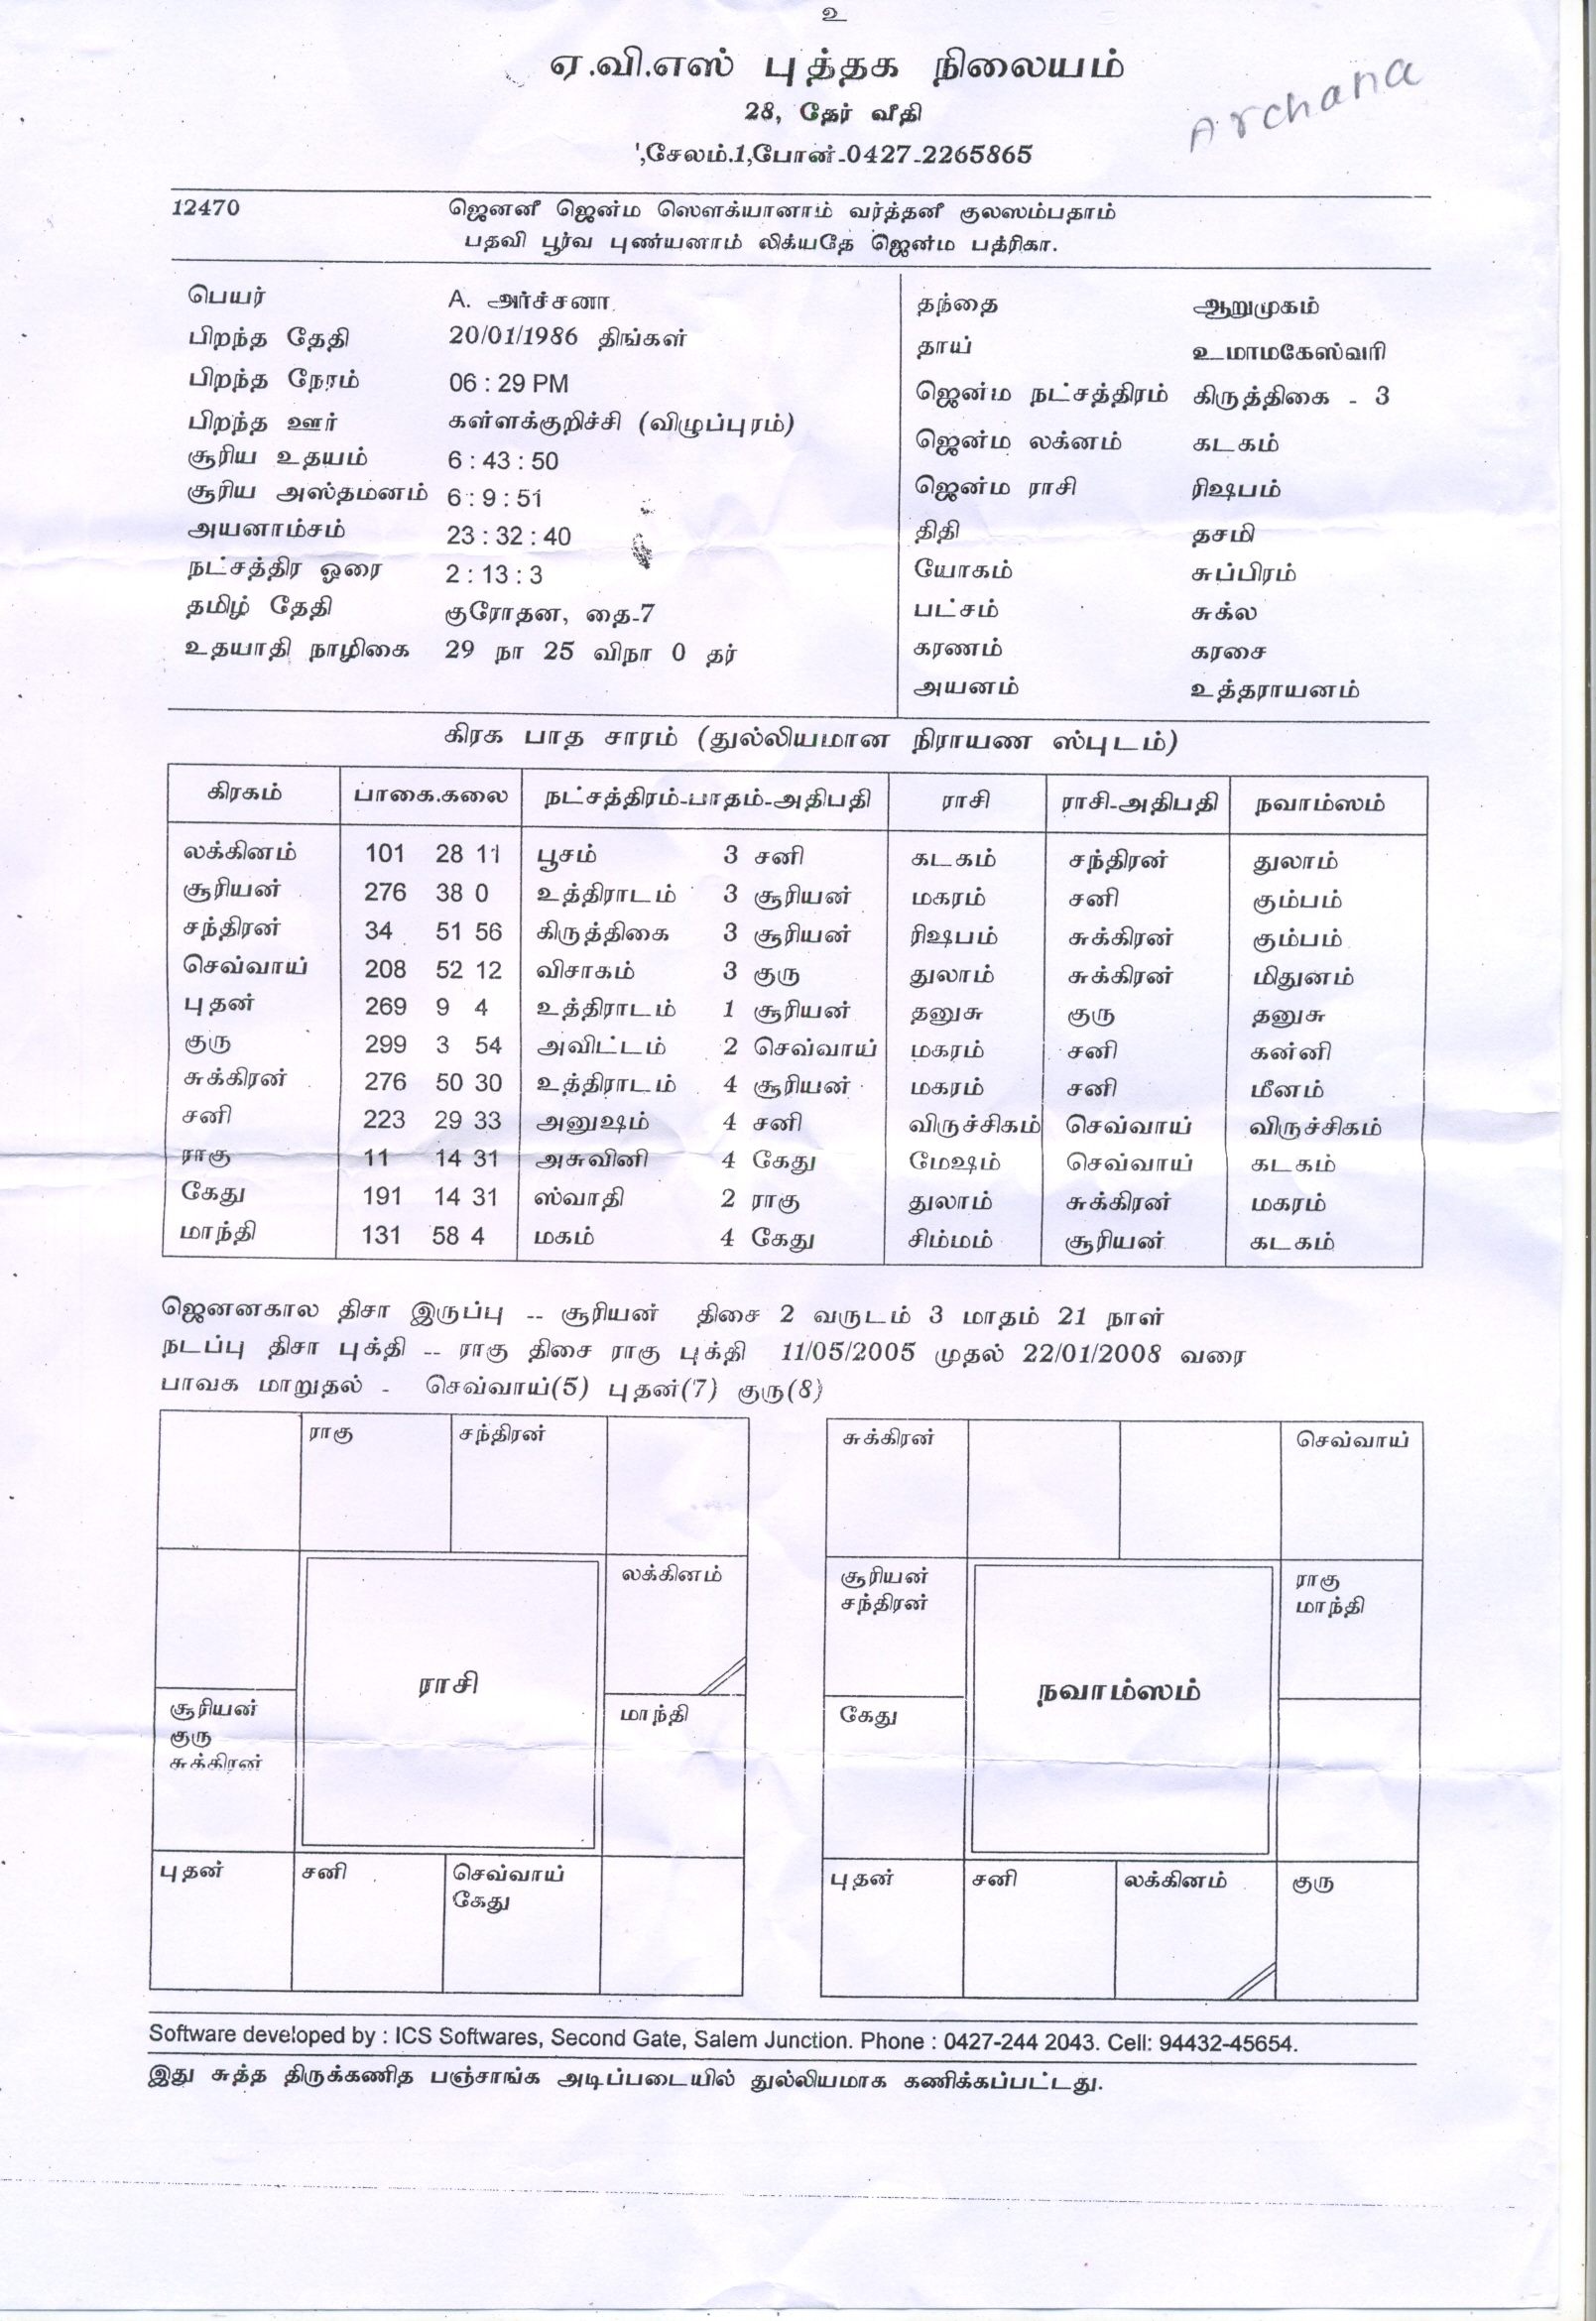 உ
ஏ.வி.எஸ் புத்தக நிலையம்
28, தேர் வீதி
',சேலம்.1,போன்-0427-2265865
Archana
12470 ஜெனனீ ஜென்ம ஸௌக்யானாம் வர்த்தனீ குலஸம்பதாம்
பதவி பூர்வ புண்யனாம் லிக்யதே ஜென்ம பத்ரிகா.
பெயர் A. அர்ச்சனா
பிறந்த தேதி 20/01/1986 திங்கள்
பிறந்த நேரம் 06 : 29 PM
பிறந்த ஊர் கள்ளக்குறிச்சி (விழுப்புரம்)
சூரிய உதயம் 6 : 43 : 50
சூரிய அஸ்தமனம் 6 : 9 : 51
அயனாம்சம் 23 : 32 : 40
நட்சத்திர ஓரை 2 : 13 : 3
தமிழ் தேதி குரோதன, தை-7
உதயாதி நாழிகை 29 நா 25 விநா 0 தர்
தந்தை ஆறுமுகம்
தாய் உமாமகேஸ்வரி
ஜென்ம நட்சத்திரம் கிருத்திகை - 3
ஜென்ம லக்னம் கடகம்
ஜென்ம ராசி ரிஷபம்
திதி தசமி
யோகம் சுப்பிரம்
பட்சம் சுக்ல
கரணம் கரசை
அயனம் உத்தராயனம்
கிரக பாத சாரம் (துல்லியமான நிராயண ஸ்புடம்)
கிரகம் பாகை.கலை நட்சத்திரம்-பாதம்-அதிபதி ராசி ராசி-அதிபதி நவாம்ஸம்
லக்கினம் 101 28 11 பூசம் 3 சனி கடகம் சந்திரன் துலாம்
சூரியன் 276 38 0 உத்திராடம் 3 சூரியன் மகரம் சனி கும்பம்
சந்திரன் 34 51 56 கிருத்திகை 3 சூரியன் ரிஷபம் சுக்கிரன் கும்பம்
செவ்வாய் 208 52 12 விசாகம் 3 குரு துலாம் சுக்கிரன் மிதுனம்
புதன் 269 9 4 உத்திராடம் 1 சூரியன் தனுசு குரு தனுசு
குரு 299 3 54 அவிட்டம் 2 செவ்வாய் மகரம் சனி கன்னி
சுக்கிரன் 276 50 30 உத்திராடம் 4 சூரியன் மகரம் சனி மீனம்
சனி 223 29 33 அனுஷம் 4 சனி விருச்சிகம் செவ்வாய் விருச்சிகம்
ராகு 11 14 31 அசுவினி 4 கேது மேஷம் செவ்வாய் கடகம்
கேது 191 14 31 ஸ்வாதி 2 ராகு துலாம் சுக்கிரன் மகரம்
மாந்தி 131 58 4 மகம் 4 கேது சிம்மம் சூரியன் கடகம்
ஜெனனகால திசா இருப்பு -- சூரியன் திசை 2 வருடம் 3 மாதம் 21 நாள்
நடப்பு திசா புக்தி -- ராகு திசை ராகு புக்தி 11/05/2005 முதல் 22/01/2008 வரை
பாவக மாறுதல் - செவ்வாய்(5) புதன்(7) குரு(8)
ராகு சந்திரன்
லக்கினம்
ராசி
சூரியன்
குரு
சுக்கிரன்
மாந்தி
புதன் சனி செவ்வாய்
கேது
சுக்கிரன் செவ்வாய்
சூரியன்
சந்திரன்
ராகு
மாந்தி
நவாம்ஸம்
கேது
புதன் சனி லக்கினம் குரு
Software developed by : ICS Softwares, Second Gate, Salem Junction. Phone : 0427-244 2043. Cell: 94432-45654.
இது சுத்த திருக்கணித பஞ்சாங்க அடிப்படையில் துல்லியமாக கணிக்கப்பட்டது.